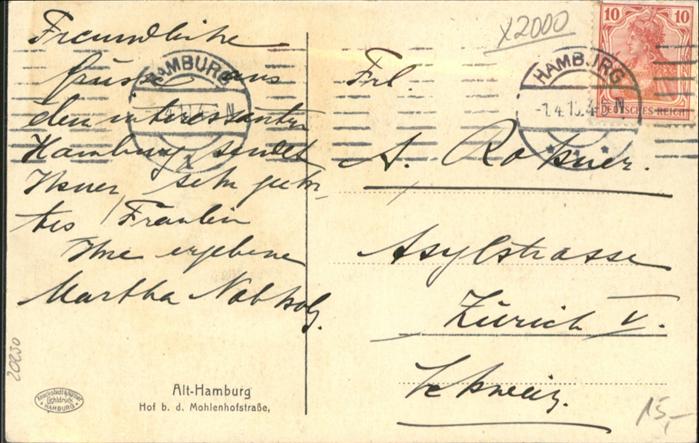 Freundliche
Grüsse aus
dem interessanten
Hamburg sendet
Ihnen sehr geehr-
tes Fräulein
Ihre ergebene
Martha Nabholz.
X2000
HAMBURG
HAMBURG
-1.4.13.4-5 N
10 10
DEUTSCHES REICH
Frl.
A. Rohner.
Asylstrasse
Zürich V.
Schweiz.
15,-
20230
HAMBURG
Alt-Hamburg
Hof b. d. Mohlenhofstraße,